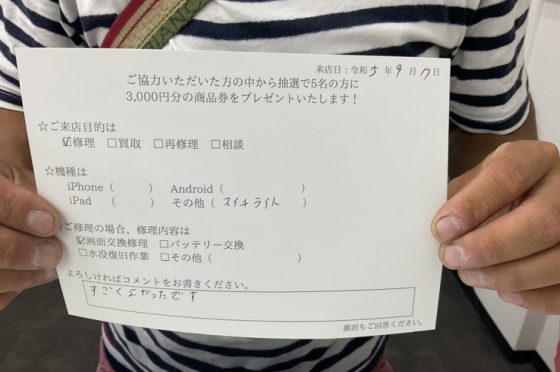 来店日:令和5年9月17日
ご協力いただいた方の中から抽選で5名の方に
3,000円分の商品券をプレゼントいたします!
☆ご来店目的は
☑修理 □買取 □再修理 □相談
☆機種は
iPhone( ) Android( )
iPad( ) その他(スイッチライト)
☆ご修理の場合、修理内容は
☑画面交換修理 □バッテリー交換
□水没復旧作業 □その他( )
よろしければコメントをお書きください。
すごくよかったです
裏面もご回答ください。